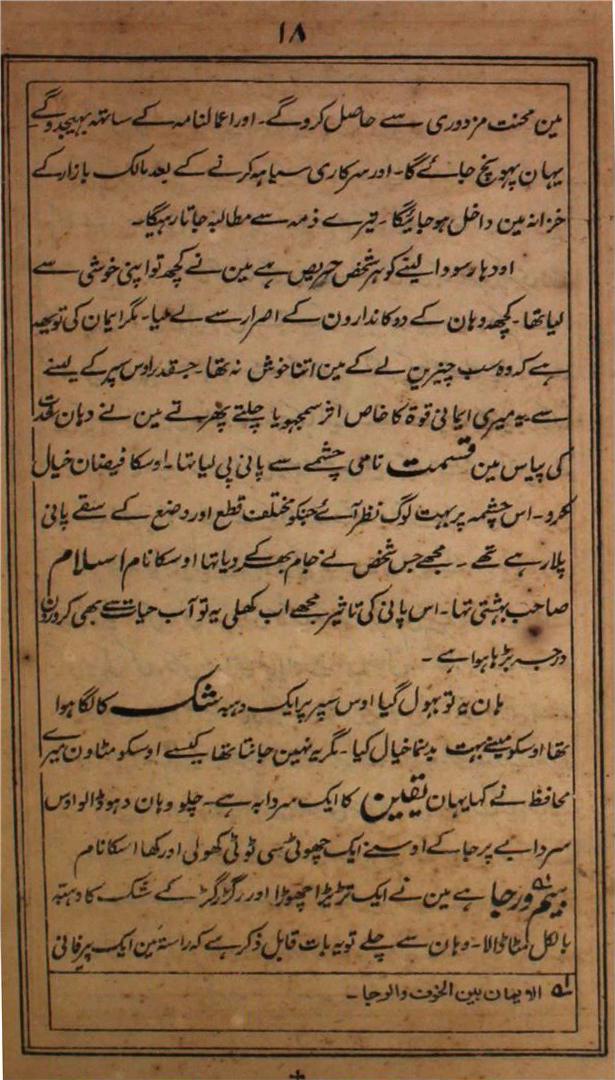 ۱۸
مین محنت مزدوری سے حاصل کروگے۔ اور اعمالنامہ کے ساتھ بہیجدوگے
یہان پہونچ جائےگا۔ اور سرکاری سیاہہ کرنے کے بعد مالک بازار کے
خزانہ مین داخل ہو جائیگا۔ تیرے ذمہ سے مطالبہ جاتا رہیگا۔
اودہار سودا لینے کو ہر شخص حریص ہے مین نے کچھ تو اپنی خوشی سے
لیا تھا۔ کچھ وہان کے دوکاندارون کے اصرار سے لے لیا۔ مگر ایمان کی تو یہہ
ہے کہ وہ سب چیزین لے کے مین اتنا خوش نہ تھا۔ جسقدر اوس سپر کے لینے
سے یہ میری ایمانی قوۃ کا خاص اثر سمجھو یا چلتے پھرتے مین نے وہان شدت
کی پیاس مین قسمت نامی چشمے سے پانی پی لیا تہا۔ اوسکا فیضان خیال
کرو۔ اس چشمہ پر بہت لوگ نظر آئے جنکو مختلف قطع اور وضع کے سقے پانی
پلا رہے تھے۔ مجھے جس شخص نے جام بھرکے دیا تہا اوسکا نام اسلام
صاحب بہشتی تہا۔ اس پانی کی تاثیر مجھے اب کھلی یہ تو آب حیات سے بھی کرورون
درجہ بڑہا ہوا ہے۔
ہان یہ تو بہول گیا اوس سپر پر ایک دہبہ شک کا لگا ہوا
تھا اوسکو مینے بہت بدنما خیال کیا۔ مگر یہ نہین جانتا تھا کیسے اوسکو مٹاون میرے
محافظ نے کہا یہان یقین کا ایک سردابہ ہے۔ چلو وہان دہو ڈالو اوس
سردابے پر جا کے اوسنے ایک چھوٹی سی ٹوٹی کھولی اور کہا اسکا نام
بیم و رجا ؎۱ ہے مین نے ایک تڑیڑا چھوڑا اور رگڑ رگڑ کے شک کا دہبہ
بالکل مٹا ڈالا۔ وہان سے چلے تو یہ بات قابل ذکر ہے کہ راستہ مین ایک پیر فانی
؎۱ الایمان بین الخوف والرجا۔